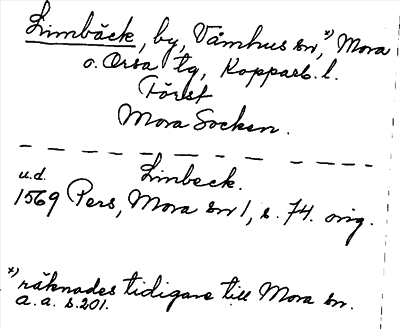 Limbäck, by, Våmhus sn,*) Mora
o. Orsa tg, Kopparb. l.
Först
Mora Socken.
Limbeck.
u.d.
1569 Pers, Mora sn 1, s. 74. orig.
*) räknades tidigare till Mora sn.
a. a. s. 201.